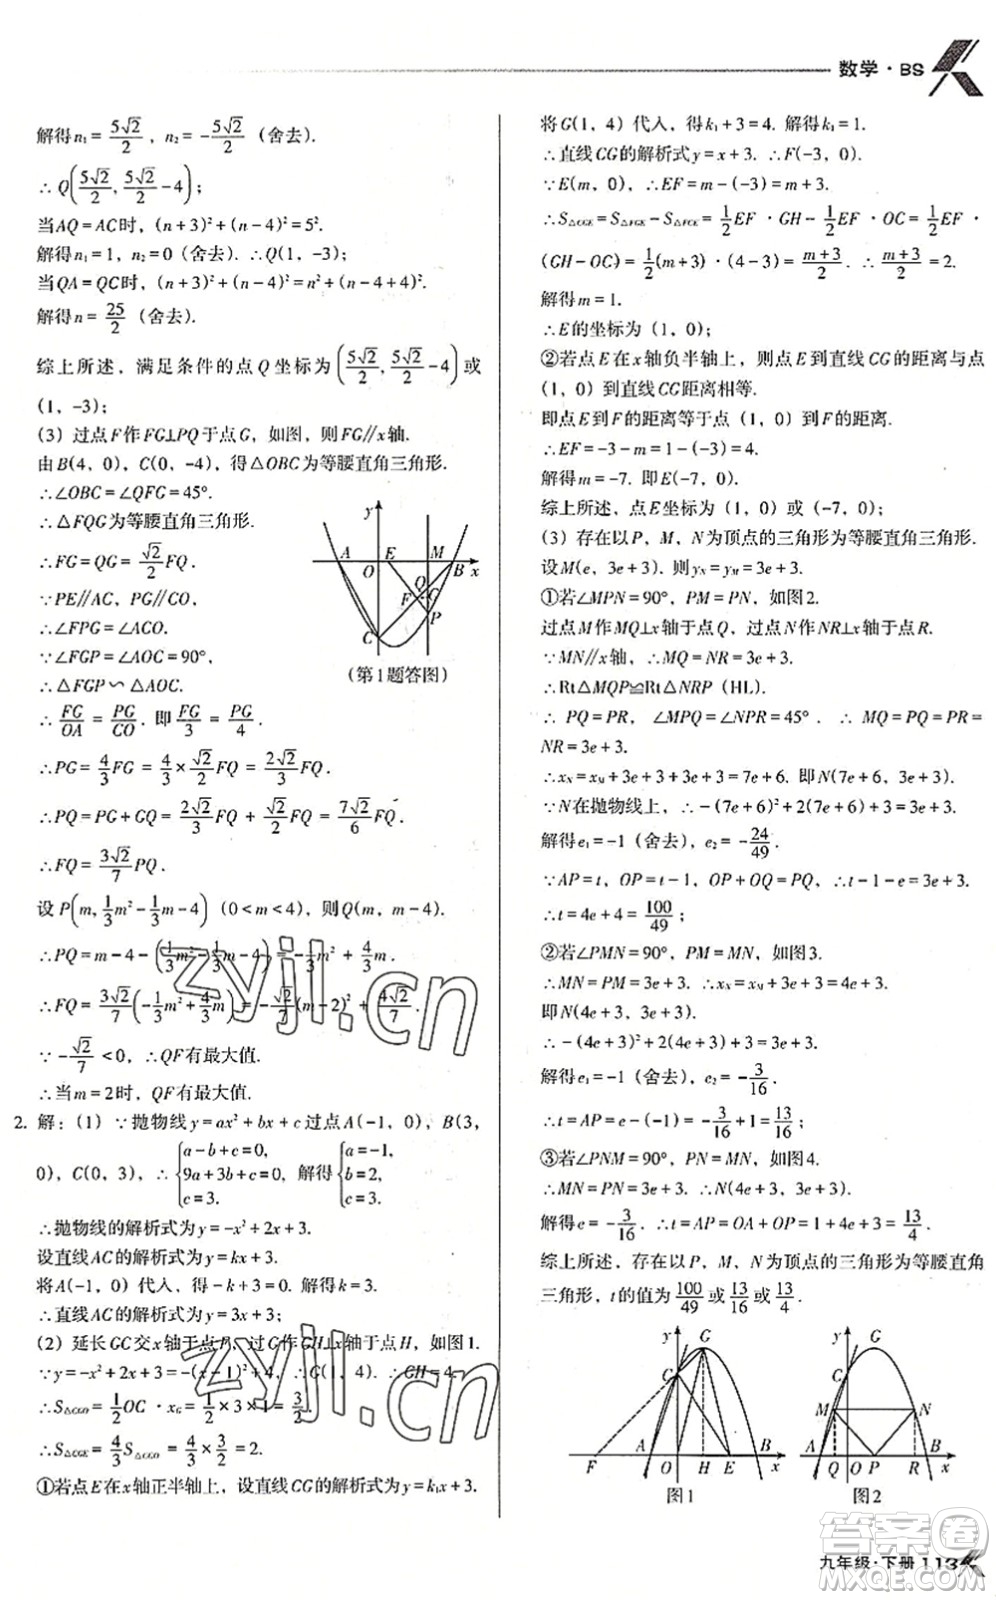 数学·BS
解得n₁=5√2/2，n₂=-5√2/2（舍去）.
∴Q(5√2/2, 5√2/2-4)；
当AQ=AC时，(n+3)²+(n-4)²=5².
解得n₁=1，n₂=0（舍去）.∴Q(1，-3)；
当QA=QC时，(n+3)²+(n-4)²=n²+(n-4+4)².
解得n=25/2（舍去）.
综上所述，满足条件的点Q坐标为(5√2/2, 5√2/2-4)或
(1，-3)；
（3）过点F作FG⊥PQ于点G，如图，则FG∥x轴.
由B(4，0)，C(0，-4)，得△OBC为等腰直角三角形.
∴∠OBC=∠QFG=45°.
∴△FQG为等腰直角三角形.
∴FG=QG=√2/2FQ.
∵PE∥AC，PG∥CO.
∴∠FPG=∠ACO.
∵∠FGP=∠AOC=90°，
∴△FGP∽△AOC.
∴FG/OA=PG/CO. 即FG/3=PG/4.
∴PG=4/3FG=4/3×√2/2FQ=2√2/3FQ.
∴PQ=PG+GQ=2√2/3FQ+√2/2FQ=7√2/6FQ.
∴FQ=3√2/7PQ.
设P(m, 1/3m²-1/3m-4)（0<m<4），则Q(m，m-4).
∴PQ=m-4-(1/3m²-1/3m-4)=-1/3m²+4/3m.
∴FQ=3√2/7(-1/3m²+4/3m)=-√2/7(m-2)²+4√2/7.
∵-√2/7<0，∴QF有最大值.
∴当m=2时，QF有最大值.
y
A
E
M
O
B
x
Q
F
G
P
C
（第1题答图）
2. 解：（1）∵抛物线y=ax²+bx+c过点A(-1，0)，B(3，
0)，C(0，3)，∴{a-b+c=0, 9a+3b+c=0, c=3. 解得{a=-1, b=2, c=3.
∴抛物线的解析式为y=-x²+2x+3.
设直线AC的解析式为y=kx+3.
将A(-1，0)代入，得-k+3=0. 解得k=3.
∴直线AC的解析式为y=3x+3；
（2）延长GC交x轴于点F，过G作GH⊥x轴于点H，如图1.
∵y=-x²+2x+3=-(x-1)²+4，∴G(1，4). ∴GH=4.
∴S△CGO=1/2OC·x_G=1/2×3×1=3/2.
∴S△CGE=4/3S△CGO=4/3×3/2=2.
①若点E在x轴正半轴上，设直线CG的解析式为y=k₁x+3.
将G(1，4)代入，得k₁+3=4. 解得k₁=1.
∴直线CG的解析式y=x+3. ∴F(-3，0).
∵E(m，0)，∴EF=m-(-3)=m+3.
∴S△CGE=S△FGE-S△FCE=1/2EF·GH-1/2EF·OC=1/2EF·
(GH-OC)=1/2(m+3)·(4-3)=(m+3)/2. ∴(m+3)/2=2.
解得m=1.
∴E的坐标为(1，0)；
②若点E在x轴负半轴上，则点E到直线CG的距离与点
(1，0)到直线CG距离相等.
即点E到F的距离等于点(1，0)到F的距离.
∴EF=-3-m=1-(-3)=4.
解得m=-7. 即E(-7，0).
综上所述，点E坐标为(1，0)或(-7，0)；
（3）存在以P，M，N为顶点的三角形为等腰直角三角形.
设M(e，3e+3). 则y_N=y_M=3e+3.
①若∠MPN=90°，PM=PN，如图2.
过点M作MQ⊥x轴于点Q，过点N作NR⊥x轴于点R.
∵MN∥x轴，∴MQ=NR=3e+3.
∴Rt△MQP≌Rt△NRP（HL）.
∴PQ=PR，∠MPQ=∠NPR=45°. ∴MQ=PQ=PR=
NR=3e+3.
∴x_N=x_M+3e+3+3e+3=7e+6. 即N(7e+6，3e+3).
∵N在抛物线上，∴-(7e+6)²+2(7e+6)+3=3e+3.
解得e₁=-1（舍去），e₂=-24/49.
∵AP=t，OP=t-1，OP+OQ=PQ，∴t-1-e=3e+3.
∴t=4e+4=100/49；
②若∠PMN=90°，PM=MN，如图3.
∴MN=PM=3e+3. ∴x_N=x_M+3e+3=4e+3.
即N(4e+3，3e+3).
∴-(4e+3)²+2(4e+3)+3=3e+3.
解得e₁=-1（舍去），e₂=-3/16.
∴t=AP=e-(-1)=-3/16+1=13/16；
③若∠PNM=90°，PN=MN，如图4.
∴MN=PN=3e+3. ∴N(4e+3，3e+3).
解得e=-3/16. ∴t=AP=OA+OP=1+4e+3=13/4.
综上所述，存在以P，M，N为顶点的三角形为等腰直角
三角形，t的值为100/49或13/16或13/4.
y
G
C
F
A
O
H
E
B
x
图1
y
G
C
M
N
A
Q
O
P
R
B
x
图2
zyjl.cn
zyjl.cn
答案圈
九年级·下册 113